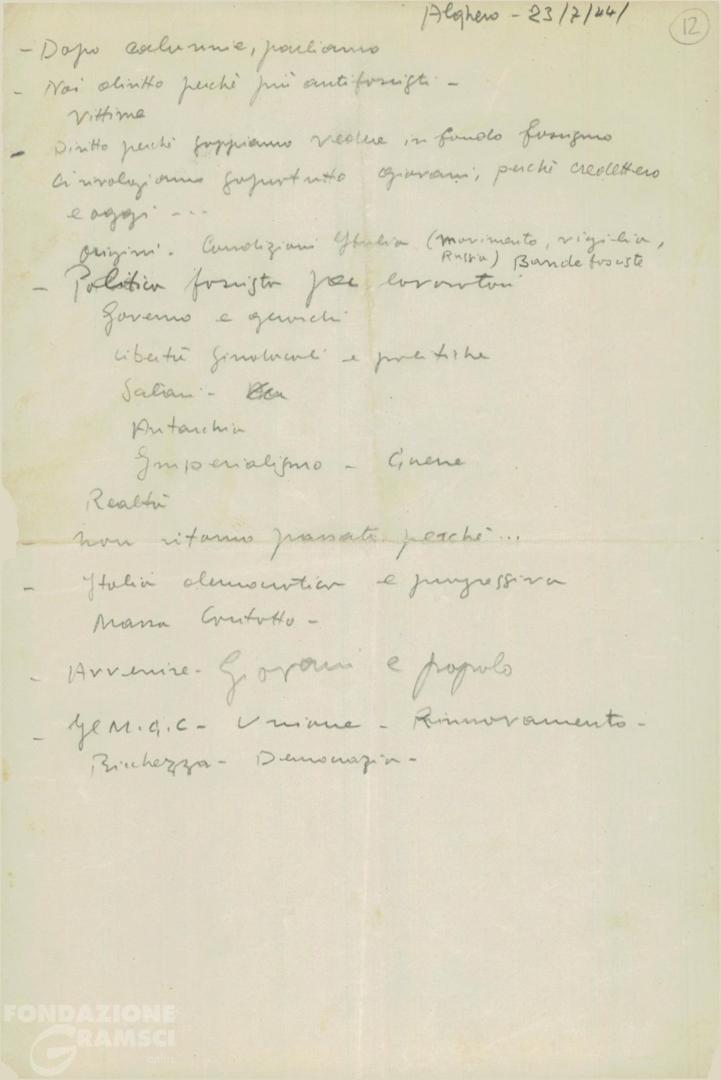 Alghero - 23/7/44/
12
- Dopo calunnie, parliamo
- Noi diritto perchè più antifascisti -
Vittime
- Diritto perchè sappiamo vedere in fondo fascismo
Ci rivolgiamo soprattutto giovani, perchè credettero
e oggi ...
origini. Condizioni Italia (movimento, vigilia,
Russia) Bande fasciste
- Politica fascista per lavoratori
Governo e gerarchi
Libertà sindacali e politiche
Salari -
Autarchia
Imperialismo - Guerre
Realtà
- Non ritorno passato perchè...
- Italia democratica e progressiva
Massa
- Avvenire - Giovani e popolo
- Il M.G.C - Unione - Rinnovamento -
Ricchezza - Democrazia -
FONDAZIONE
GRAMSCI
onlus